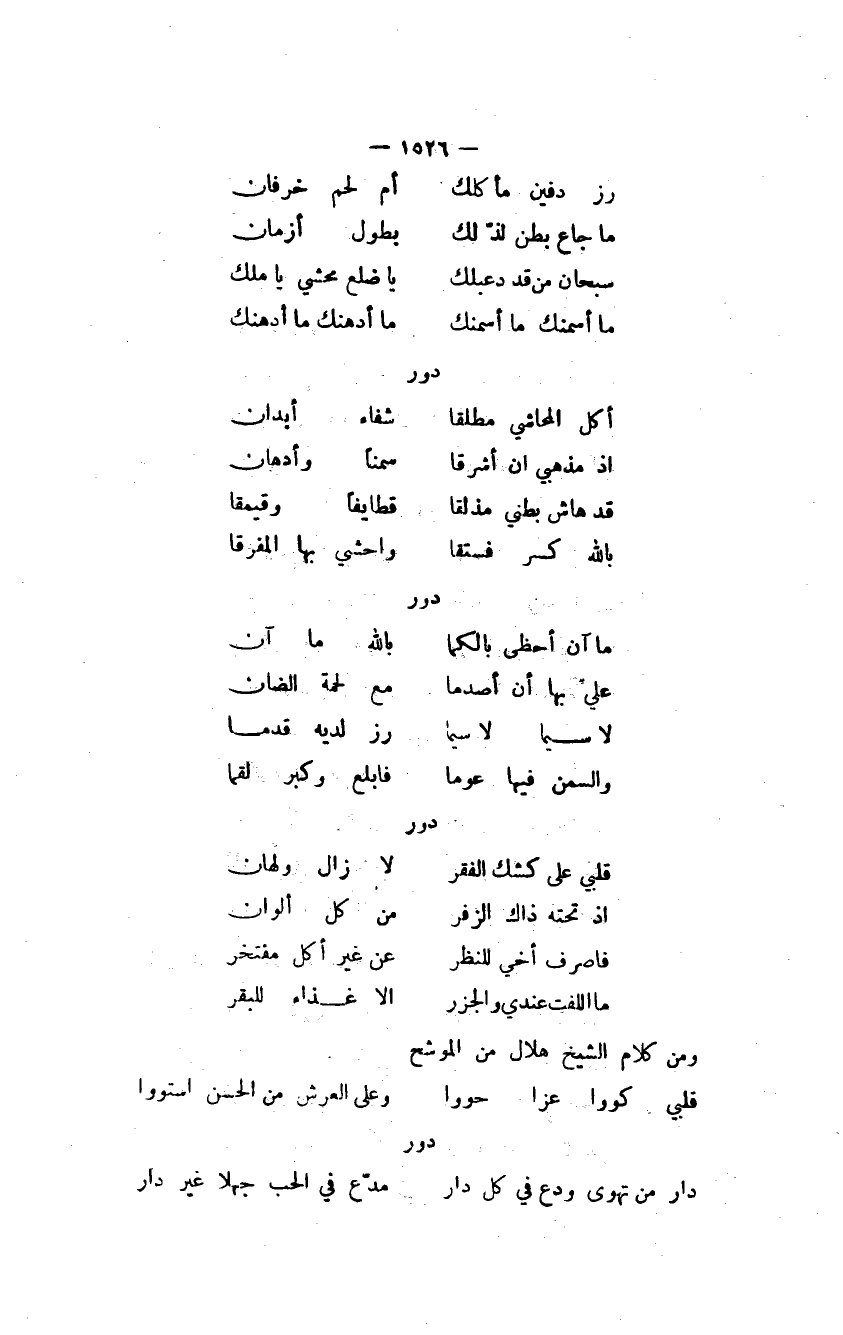 — ١٥٢٦ —
رز دفين مأكلك أم لحم خرفان
ما جاع بطن لذّ لك بطول أزمان
سبحان من قد دعبلك يا ضلع محشي يا ملك
ما أسمنك ما أسمنك ما أدهنك ما أدهنك
دور
أكل المحاشي مطلقا شفاء أبدان
اذ مذهبي ان أشرقا سمناً وأدهان
قد هاش بطني مذلقا قطايفاً وقيمقا
بالله كسر فستقا واحشي بها المفرقا
دور
ما آن أحظى بالكما بالله ما آن
عليّ بها أن أصدما مع لحمة الضان
لا سيما لا سيما رز لديه قدما
والسمن فيها عوما فابلع وكبر لقما
دور
قلبي على كشك الفقر لا زال ولهان
اذ تحته ذاك الزفر من كل ألوان
فاصرف أخي للنظر عن غير أكل مفتخر
ما اللفت عندي والجزر الا غذاء للبقر
ومن كلام الشيخ هلال من الموشح
قلبي كووا عزا حووا وعلى العرش من الحسن استووا
دور
دار من تهوى ودع في كل دار مدّع في الحب جهلا غير دار